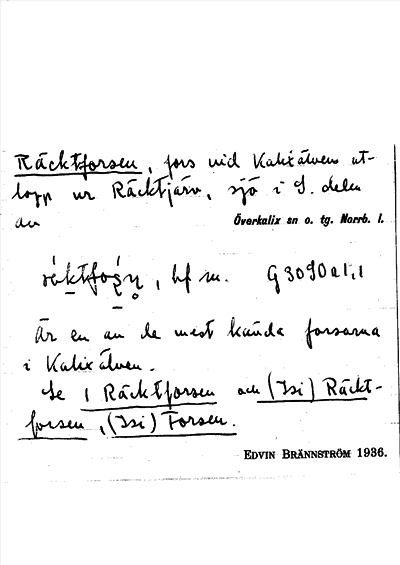 Räcktforsen, fors vid Kalixälvens ut-
lopp ur Räcktjärv, sjö i S. delen
av Överkalix sn o. tg. Norrb. l.
bf m.
Är en av de mest kända forsarna
i Kalixälven.
Se 1 Räcktforsen och (Isi) Räckt-
forsen, (Isi) Forsen.
EDVIN BRÄNNSTRÖM 1936.